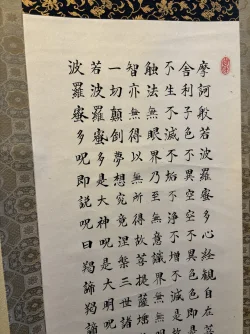 摩訶般若波羅蜜多心経観自在菩
舎利子色不異空空不異色色即是
不生不滅不垢不浄不増不減是
触法無眼界乃至無意識界無無
智亦無得以無所得故菩提薩埵
一切顛倒夢想究竟涅槃三世諸
若波羅蜜多是大神呪是大明呪
波羅蜜多呪即説呪曰羯諦羯諦